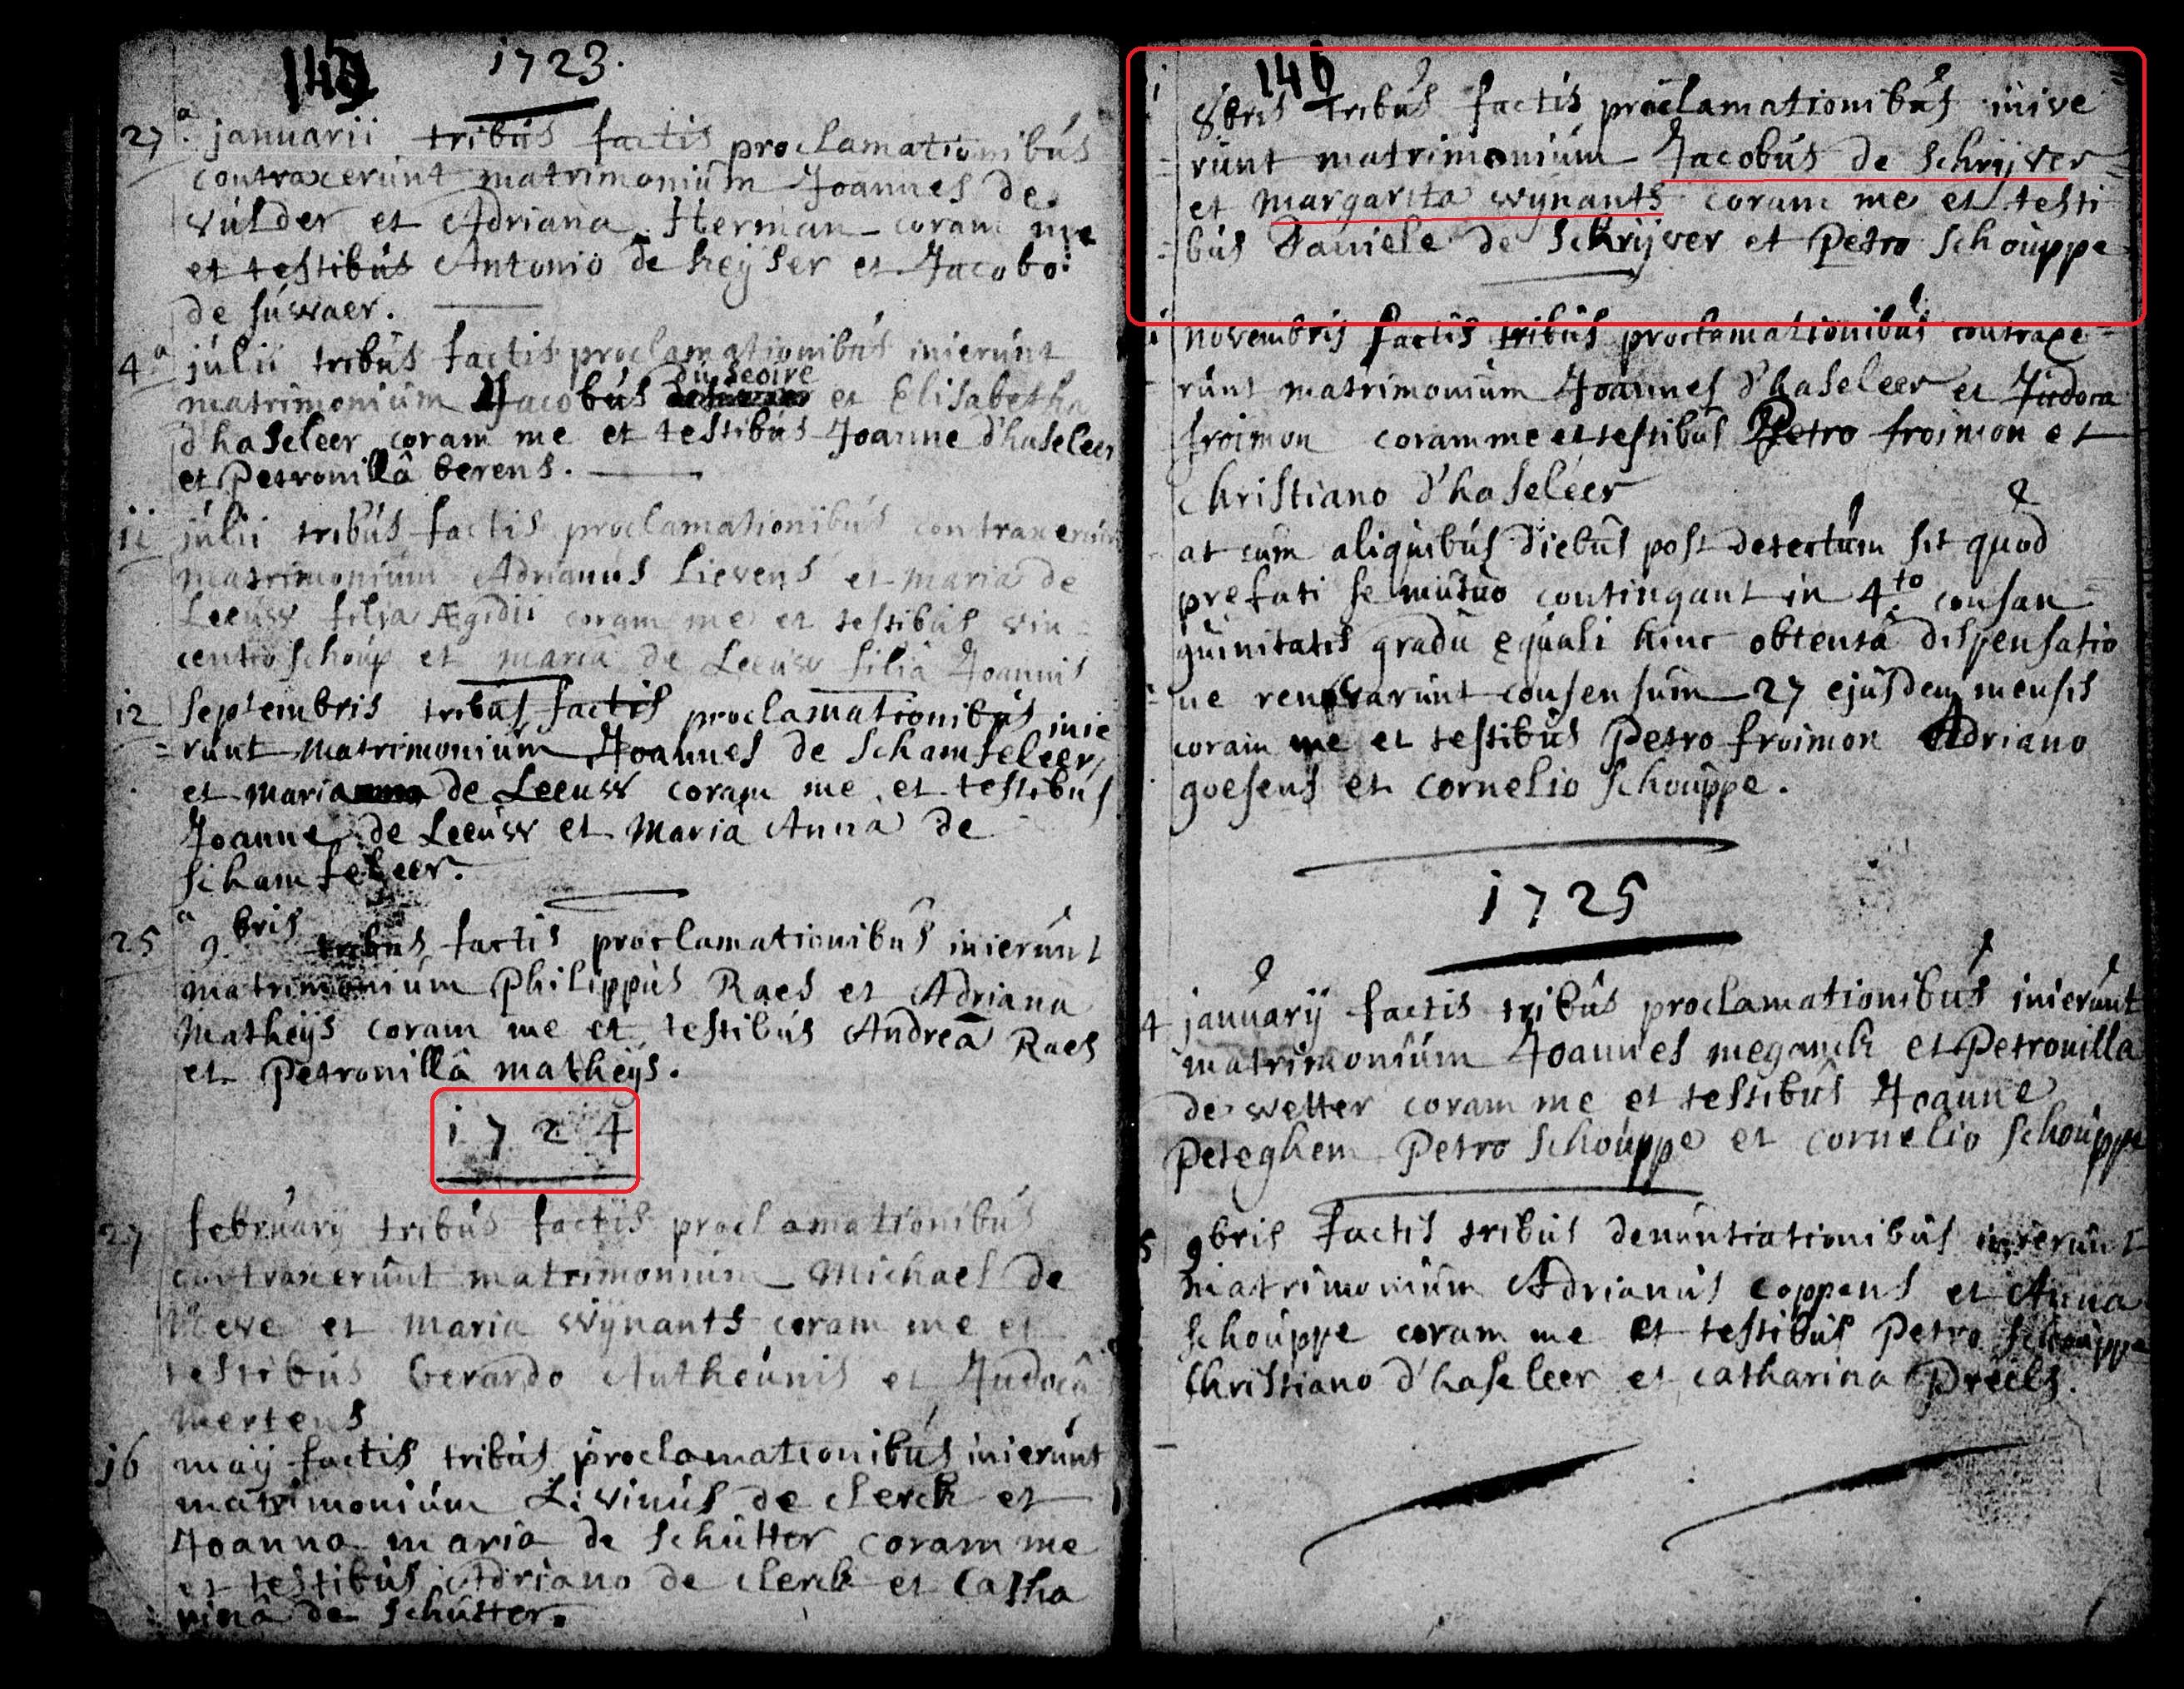 145
1723.
27a januarii tribus factis proclamationibus
contraxerunt matrimonium Joannes de
vulder et Adriana Herman coram me
et testibus Antonio de keyser et Jacobo
de suwaer.
4a julii tribus factis proclamationibus inierunt
du seoire
matrimonium Jacobus et Elisabetha
d'haseleer coram me et testibus Joanne d'haseleer
et Petronillâ berens.
ii julii tribus factis proclamationibus contraxerunt
matrimonium Adrianus Lievens et maria de
Leeuw filia Ægidii coram me et testibus vin
centio schoup et mariâ de Leeuw filiâ Joannis
12 septembris tribus factis proclamationibus inie
runt matrimonium Joannes de Schamfeleer
et maria de Leeuw coram me et testibus
Joanne de Leeuw et Mariâ Anna de
schamfeleer.
25a 9bris tribus factis proclamationibus inierunt
matrimonium Philippus Raes et Adriana
Matheijs coram me et testibus Andreâ Raes
et Petronillâ matheijs.
1724
27 februarij tribus factis proclamationibus
contraxerunt matrimonium Michael de
Mewe et maria wijnants coram me et
testibus Gerardo Antheunis et Judocâ
mertens
16 maij factis tribus proclamationibus inierunt
matrimonium Livinus de clerck et
Joanna maria de schutter coram me
et testibus Adriano de clerck et Catha
rinâ de schutter.
146
i 8bris tribus factis proclamationibus inive
runt matrimonium Jacobus de Schrijver
et margarita wijnants coram me et testi
bus Daniele de Schrijver et Petro Schouppe
i novembris factis tribus proclamationibus contraxe
runt matrimonium Joannes d'haseleer et Judoca
froimon coram me et testibus Petro froimon et
Christiano d'haseleer
at cum aliquibus diebus post detectum sit quod
prefati se mutuo contingant in 4to consan
guinitatis gradu equali hinc obtentâ dispensatio
ne renovarunt consensum 27 ejusdem mensis
coram me et testibus Petro froimon Adriano
goesens et cornelio schouppe.
1725
4 januarij factis tribus proclamationibus inierunt
matrimonium Joannes meganck et Petronilla
de wetter coram me et testibus Joanne
Peteghem Petro Schouppe et cornelio schouppe
5 9bris factis tribus denuntiationibus inierunt
matrimonium Adrianus coppens et Anna
schouppe coram me et testibus Petro schouppe
Christiano d'haseleer et catharina